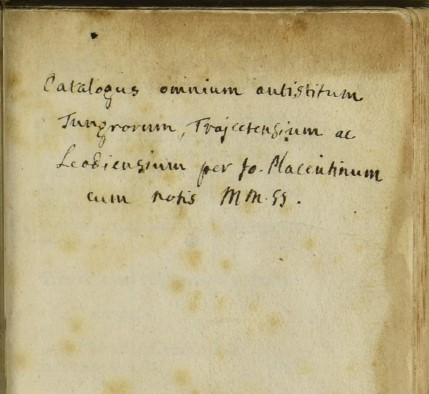 Catalogus omnium antistitum
Tungrorum, Trajectensium ac
Leodiensium per Jo. Placentinum
cum notis MM.SS.